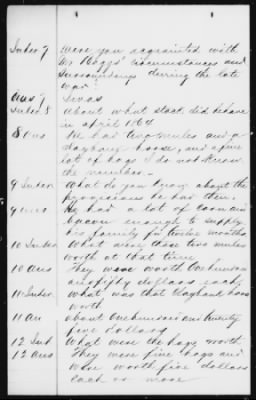 Inter 7 Were you acquainted with
Mr Boggs' circumstances and
surroundings during the late
war?
Ans 7 I was
Inter 8 About what stock did he have
in April 1864
8 Ans He had two mules and a
claybank horse, and a fine
lot of hogs I do not know
the number.
9 Inter What do you know about the
provisions he had then
9 Ans He had a lot of corn and
bacon enough to supply
his family for twelve months
10 Inter What were those two mules
worth at that time
10 Ans They were worth One hundred
and fifty dollars each
11 Inter What was that Claybank horse
worth
11 An about One hundred and twenty
five dollars
12 Int What were the hogs worth
12 Ans They were fine hogs and
were worth five dollars
each or more